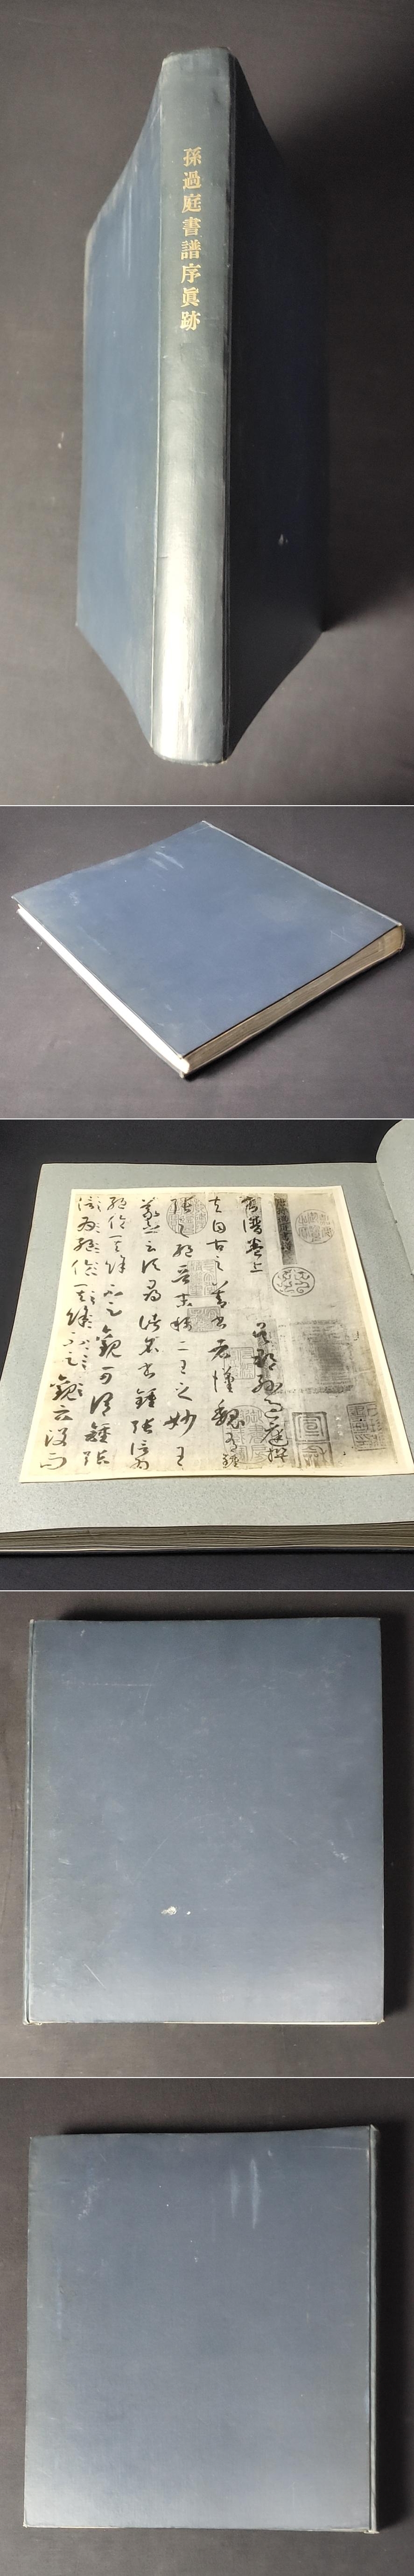 孫過庭書譜序眞跡
書譜卷上 吳郡孫過庭撰
夫自古之善書者漢魏有鍾
張之絕晉末稱二王之妙王
羲之云頃尋諸名書鍾張信為
絕倫其餘不足觀可謂鍾張
信為絕倫其餘不足觀云沒而